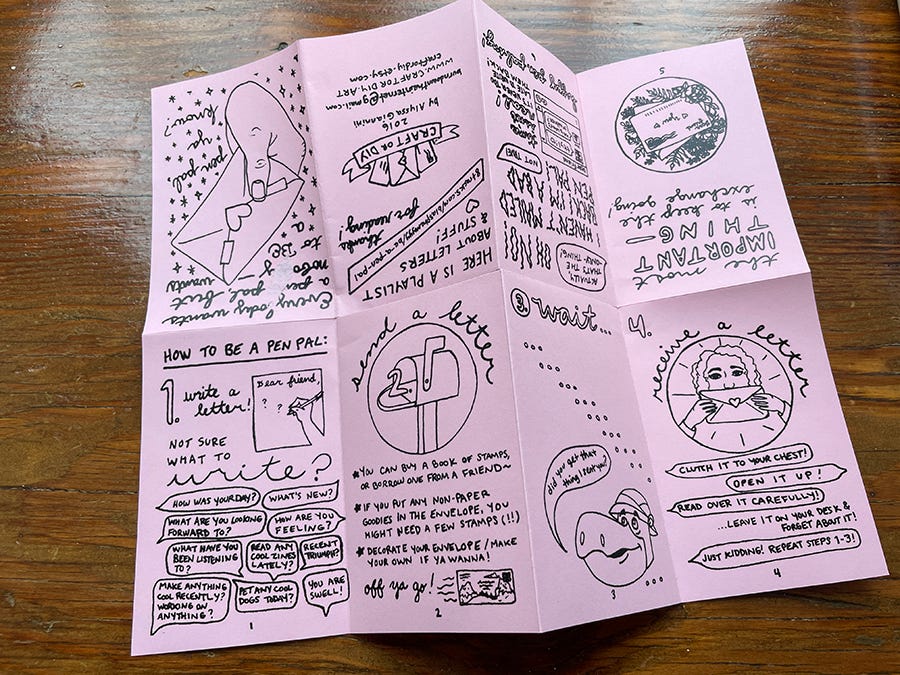 Everybody wants
a pen pal but
nobody wants
to BE
a
pen pal,
ya
know?
HOW TO BE A PEN PAL:
1. write a
letter!
Dear friend,
? ?
NOT SURE
WHAT TO
write?
HOW WAS YOUR DAY?
WHAT'S NEW?
WHAT ARE YOU LOOKING
FORWARD TO?
HOW ARE YOU
FEELING?
WHAT HAVE YOU
BEEN LISTENING
TO?
READ ANY
COOL ZINES
LATELY?
RECENT
TRIUMPH?
MAKE ANYTHING
COOL RECENTLY?
WORKING ON
ANYTHING?
PET ANY COOL
DOGS TODAY?
YOU ARE
SWELL!
1
send a letter
2
YOU CAN BUY A BOOK OF STAMPS,
OR BORROW ONE FROM A FRIEND~
IF YOU PUT ANY NON-PAPER
GOODIES IN THE ENVELOPE, YOU
MIGHT NEED A FEW STAMPS (!!)
DECORATE YOUR ENVELOPE/MAKE
YOUR OWN IF YA WANNA!
off ya go!
2
3. wait...
did you get that
thing I sent you?
3
4.
receive a letter
CLUTCH IT TO YOUR CHEST!
OPEN IT UP!
READ OVER IT CAREFULLY!
...LEAVE IT ON YOUR DESK &
FORGET ABOUT IT!
JUST KIDDING! REPEAT STEPS 1-3!
4
the most
IMPORTANT
THING—
is to keep the
exchange going!
you
5
ACTUALLY,
THAT'S THE
ONLY THING!
I HAVEN'T MAILED
BACK! I'M A BAD
PEN PAL
NOT TRUE!
HERE IS A PLAYLIST
ABOUT LETTERS
& STUFF!
thanks
for reading!
CRAFT OR DIY
2016
by Alissa Giannini
WWW.CRAFTORDIY.ART
craftordiy.etsy.com